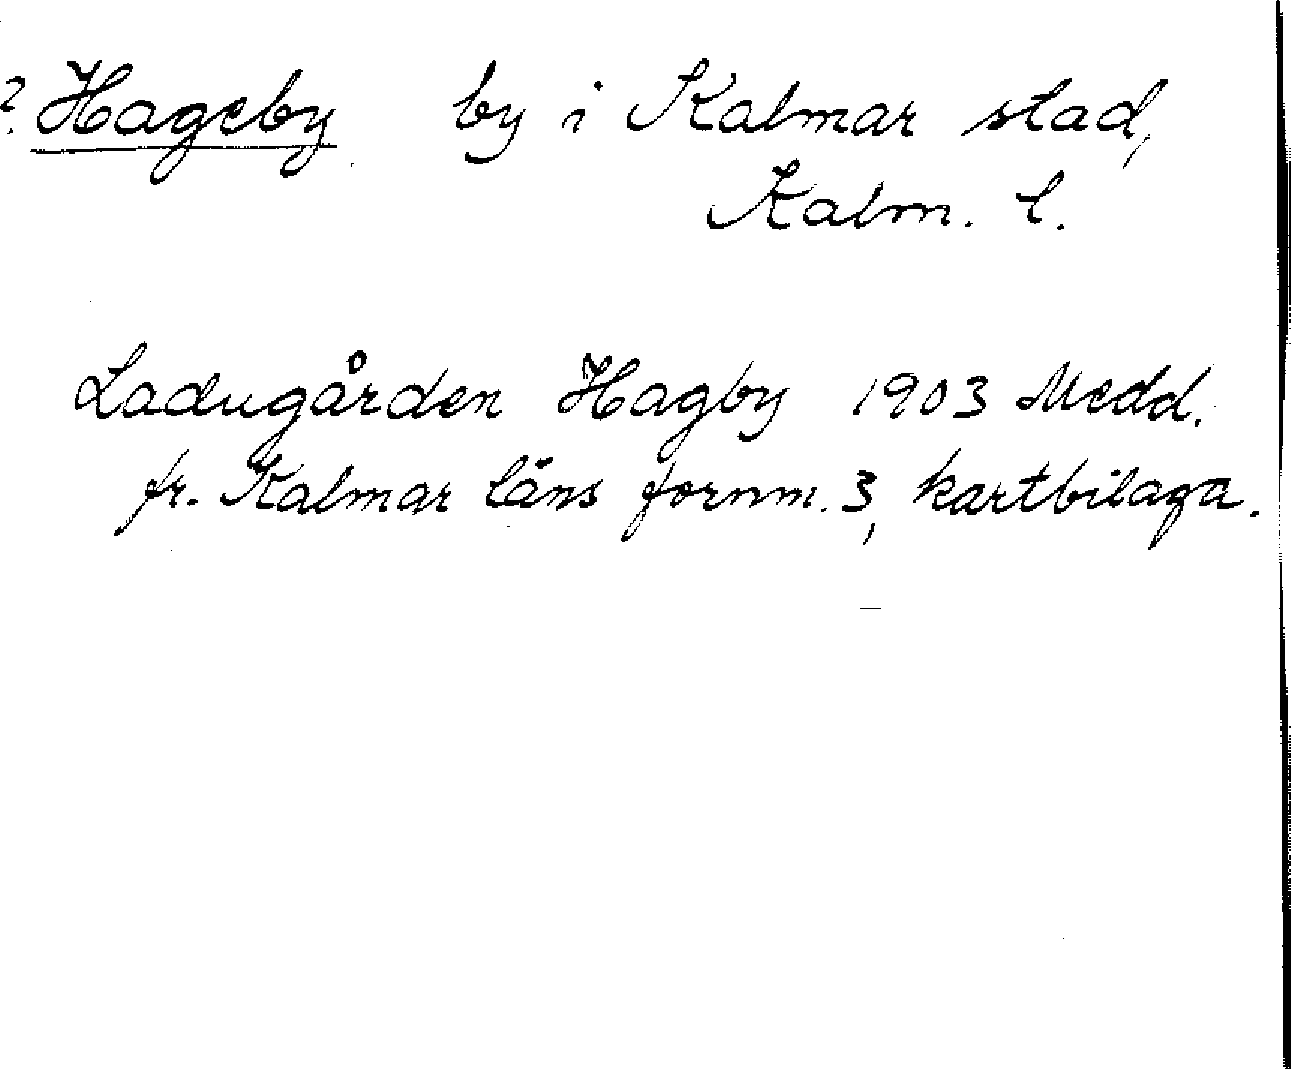 ? Hageby by i Kalmar stad,
Kalm. l.
Ladugården Hagby 1903 Medd.
fr. Kalmar läns fornm. 3, kartbilaga.